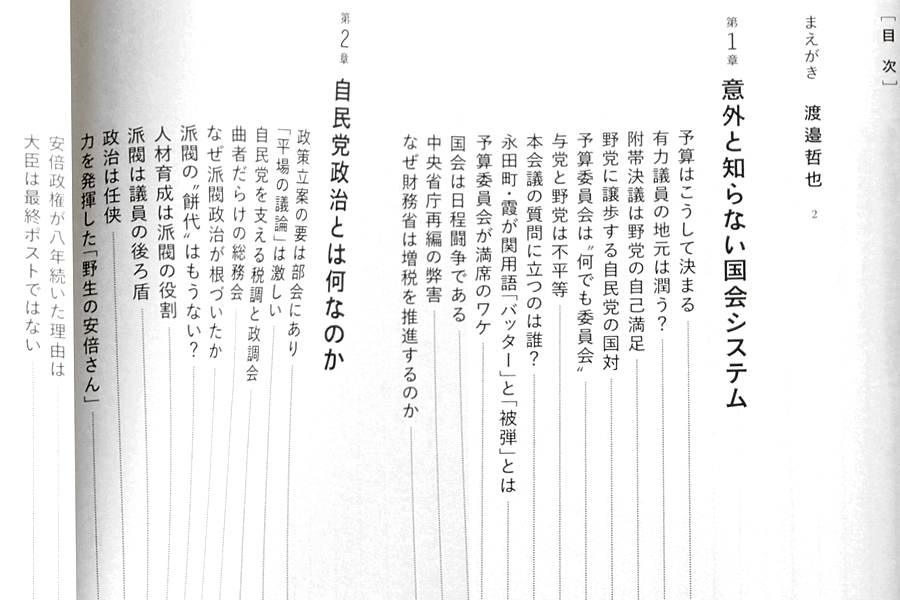 ［目 次］
まえがき 渡邉哲也 2
第1章 意外と知らない国会システム
予算はこうして決まる
有力議員の地元は潤う？
附帯決議は野党の自己満足
野党に譲歩する自民党の国対
予算委員会は〝何でも委員会〟
与党と野党は不平等
本会議の質問に立つのは誰？
永田町・霞が関用語「バッター」と「被弾」とは
予算委員会が満席のワケ
国会は日程闘争である
中央省庁再編の弊害
なぜ財務省は増税を推進するのか
第2章 自民党政治とは何なのか
政策立案の要は部会にあり
「平場の議論」は激しい
自民党を支える税調と政調会
曲者だらけの総務会
なぜ派閥政治が根づいたか
派閥の〝餅代〟はもうない？
人材育成は派閥の役割
派閥は議員の後ろ盾
政治は任侠
力を発揮した「野生の安倍さん」
安倍政権が八年続いた理由は
大臣は最終ポストではない